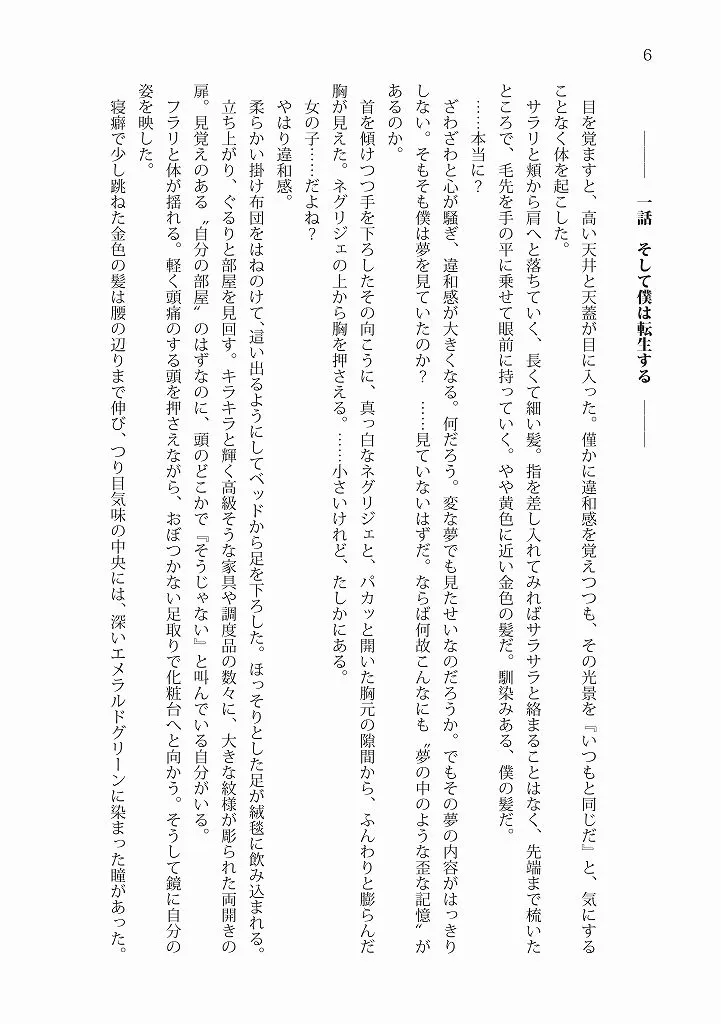 6
一話　そして僕は転生する
目を覚ますと、高い天井と天蓋が目に入った。僅かに違和感を覚えつつも、その光景を『いつもと同じだ』と、気にする
ことなく体を起こした。
サラリと頬から肩へと落ちていく、長くて細い髪。指を差し入れてみればサラサラと絡まることはなく、先端まで梳いた
ところで、毛先を手の平に乗せて眼前に持っていく。やや黄色に近い金色の髪だ。馴染みある、僕の髪だ。
……本当に？
ざわざわと心が騒ぎ、違和感が大きくなる。何だろう。変な夢でも見たせいなのだろうか。でもその夢の内容がはっきり
しない。そもそも僕は夢を見ていたのか？　……見ていないはずだ。ならば何故こんなにも〝夢の中のような歪な記憶〟が
あるのか。
首を傾けつつ手を下ろしたその向こうに、真っ白なネグリジェと、パカッと開いた胸元の隙間から、ふんわりと膨らんだ
胸が見えた。ネグリジェの上から胸を押さえる。……小さいけれど、たしかにある。
女の子……だよね？
やはり違和感。
柔らかい掛け布団をはねのけて、這い出るようにしてベッドから足を下ろした。ほっそりとした足が絨毯に飲み込まれる。
立ち上がり、ぐるりと部屋を見回す。キラキラと輝く高級そうな家具や調度品の数々に、大きな紋様が彫られた両開きの
扉。見覚えのある〝自分の部屋〟のはずなのに、頭のどこかで『そうじゃない』と叫んでいる自分がいる。
フラリと体が揺れる。軽く頭痛のする頭を押さえながら、おぼつかない足取りで化粧台へと向かう。そうして鏡に自分の
姿を映した。
寝癖で少し跳ねた金色の髪は腰の辺りまで伸び、つり目気味の中央には、深いエメラルドグリーンに染まった瞳があった。